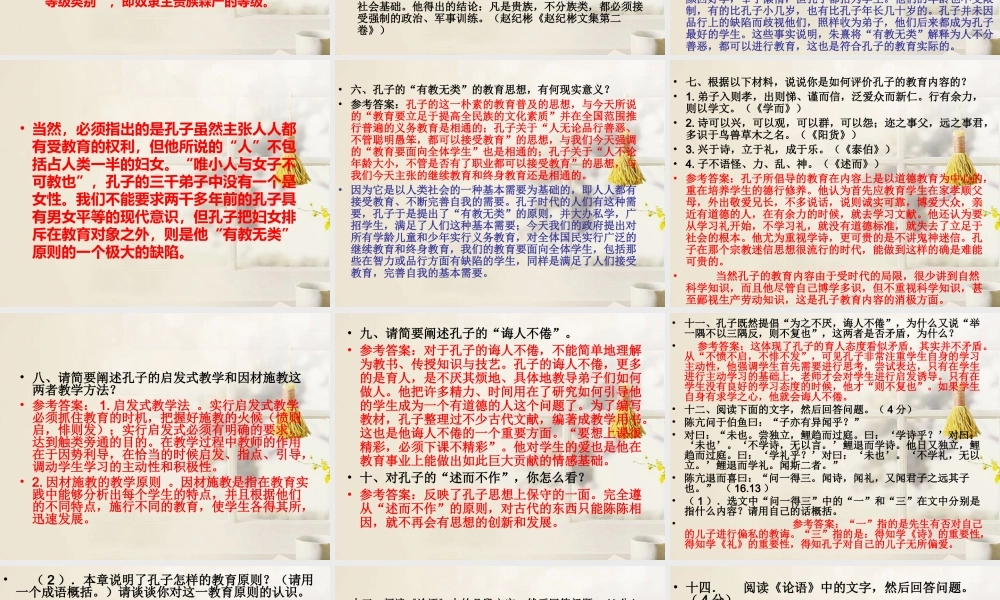 等级类别”，即奴隶主贵族森严的等级。
社会基础。他得出的结论：凡是贵族，不分族类，都必须接
受强制的政治、军事训练。（赵纪彬《赵纪彬文集第二
卷》）
制，有的比孔子小几岁，也有比孔子年长几十岁的。孔子并未因
品行上的缺陷而歧视他们，照样收为弟子，他们后来都成为孔子
最好的学生。这些事实说明，朱熹将“有教无类”解释为人不分
善恶，都可以进行教育，这也是符合孔子的教育实际的。
• 当然，必须指出的是孔子虽然主张人人都
有受教育的权利，但他所说的“人”不包
括占人类一半的妇女。“唯小人与女子不
可教也”，孔子的三千弟子中没有一个是
女性。我们不能要求两千多年前的孔子具
有男女平等的现代意识，但孔子把妇女排
斥在教育对象之外，则是他“有教无类”
原则的一个极大的缺陷。
• 六、孔子的“有教无类”的教育思想，有何现实意义？
• 参考答案：孔子的这一朴素的教育普及的思想，与今天所说
的“教育要立足于提高全民族的文化素质”并在全国范围推
行普遍的义务教育是相通的；孔子关于“人无论品行善恶、
不管聪明愚笨，都可以接受教育”的思想，与我们今天强调
的“教育要面向全体学生”也是相通的；孔子关于“人不论
年龄大小，不管是否有了职业都可以接受教育”的思想，与
我们今天主张的继续教育和终身教育还是相通的。
• 因为它是以人类社会的一种基本需要为基础的，即人人都有
接受教育、不断完善自我的需要。孔子时代的人们有这种需
要，孔子于是提出了“有教无类”的原则，并大办私学，广
招学生，满足了人们这种基本需要；今天我们的政府提出对
所有学龄儿童和少年实行义务教育，对全体国民实行广泛的
继续教育和终身教育，我们的教育要面向全体学生，包括那
些在智力或品行方面有缺陷的学生，同样是满足了人们接受
教育，完善自我的基本需要。
• 七、根据以下材料，说说你是如何评价孔子的教育内容的？
• 1. 弟子入则孝，出则悌、谨而信，泛爱众而新仁。行有余力，
则以学文。（《学而》）
• 2. 诗可以兴，可以观，可以群，可以怨；迩之事父，远之事君，
多识于鸟兽草木之名。（《阳货》）
• 3. 兴于诗，立于礼，成于乐。（《泰伯》）
• 4. 子不语怪、力、乱、神。（《述而》）
• 参考答案：孔子所倡导的教育在内容上是以道德教育为中心的，
重在培养学生的德行修养。他认为首先应教育学生在家孝顺父
母，外出敬爱兄长，不多说话，说则诚实可靠，博爱大众，亲
近有道德的人，在有余力的时候，就去学习文献。他还认为要
从学习礼开始，不学习礼，就没有道德标准，就失去了立足于
社会的根本。他尤为重视学诗，更可贵的是不讲鬼神迷信。孔
子在那个宗教迷信思想很流行的时代，能做到这样的确是难能
可贵的。
• 当然孔子的教育内容由于受时代的局限，很少讲到自然
科学知识，而且他尽管自己博学多识，但不重视科学知识，甚
至鄙视生产劳动知识，这是孔子教育内容的消极方面。
• 八、请简要阐述孔子的启发式教学和因材施教这
两者教学方法？
• 参考答案。1. 启发式教学法 。实行启发式教学
必须抓住教育的时机，把握好施教的火候（愤则
启，悱则发）；实行启发式必须有明确的要求，
达到触类旁通的目的。在教学过程中教师的作用
在于因势利导，在恰当的时候启发、指点、引导，
调动学生学习的主动性和积极性。
• 2. 因材施教的教学原则 。因材施教是指在教育实
践中能够分析出每个学生的特点，并且根据他们
的不同特点，施行不同的教育，使学生各得其所，
迅速发展。
• 九、请简要阐述孔子的“诲人不倦”。
• 参考答案：对于孔子的诲人不倦，不能简单地理解
为教书、传授知识与技艺。孔子的诲人不倦，更多
的是育人，是不厌其烦地、具体地教导弟子们如何
做人。他把许多精力、时间用在了研究如何引导他
的学生成为一个有道德的人这个问题了。为了编写
教材，孔子整理过不少古代文献，编著成教学用书。
这也是他诲人不倦的一个重要方面。“要想上课很
精彩，必须下课不精彩”。他对学生的爱也是他在
教育事业上能做出如此巨大贡献的情感基础。
• 十、对孔子的“述而不作”，你怎么看？
• 参考答案：反映了孔子思想上保守的一面。完全遵
从“述而不作”的原则，对古代的东西只能陈陈相
因，就不再会有思想的创新和发展。
• 十一、孔子既然提倡“为之不厌，诲人不倦”，为什么又说“举
一隅不以三隅反，则不复也”，这两者是否矛盾，为什么？
• 参考答案：这体现了孔子的育人态度看似矛盾，其实并不矛盾。
从“不愤不启，不悱不发”，可见孔子非常注重学生自身的学习
主动性，他强调学生首先需要进行思考，尝试表达，只有在学生
进行主动学习的基础上，老师才会对学生进行启发诱导。只有在
学生没有良好的学习态度的时候，他才“则不复也”。如果学生
自身有求学之心，他就会诲人不倦。
• 十二、阅读下面的文字，然后回答问题。（ 4 分）
• 陈亢问于伯鱼曰：“子亦有异闻乎？”
• 对曰：“未也。尝独立，鲤趋而过庭。曰：‘学诗乎？’ 对曰：
‘未也’。‘不学诗，无以言。’鲤退而学诗。他日又独立，鲤
趋而过庭。曰：‘学礼乎？’对曰：‘未也’。‘不学礼，无以
立。’鲤退而学礼。闻斯二者。”
• 陈亢退而喜曰：“问一得三。闻诗，闻礼，又闻君子之远其子
也。” （ 16.13 ）
• （ 1 ）．选文中“问一得三”中的“一”和“三”在文中分别是
指什么内容？请用自己的话概括。
• 参考答案：“一”指的是先生有否对自己
的儿子进行偏私的教诲。“三”指的是：得知学《诗》的重要性，
得知学《礼》的重要性，得知孔子对自己的儿子无所偏爱。
• （ 2 ）．本章说明了孔子怎样的教育原则？（请用
一个成语概括。）请谈谈你对这一教育原则的认识。
• 十四． 阅读《论语》中的文字，然后回答问题。